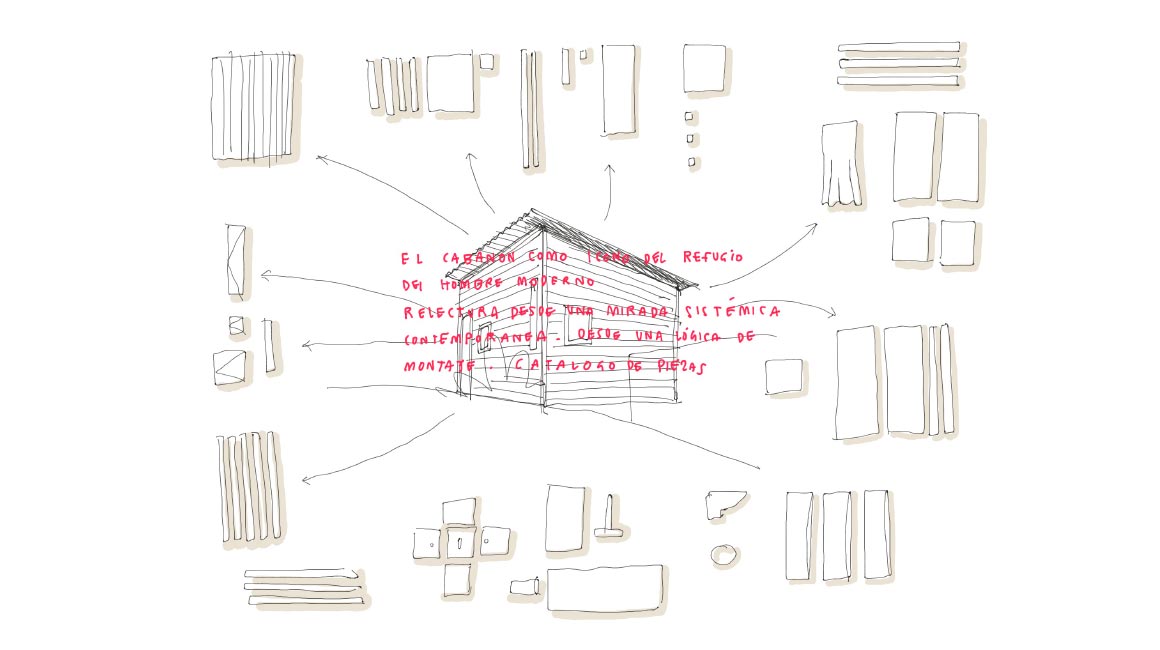 EL CABANON COMO ICONO DEL REFUGIO
DEL HOMBRE MODERNO
RELECTURA DESDE UNA MIRADA SISTÉMICA
CONTEMPORANEA. DESDE UNA LÓGICA DE
MONTAJE. CATALOGO DE PIEZAS